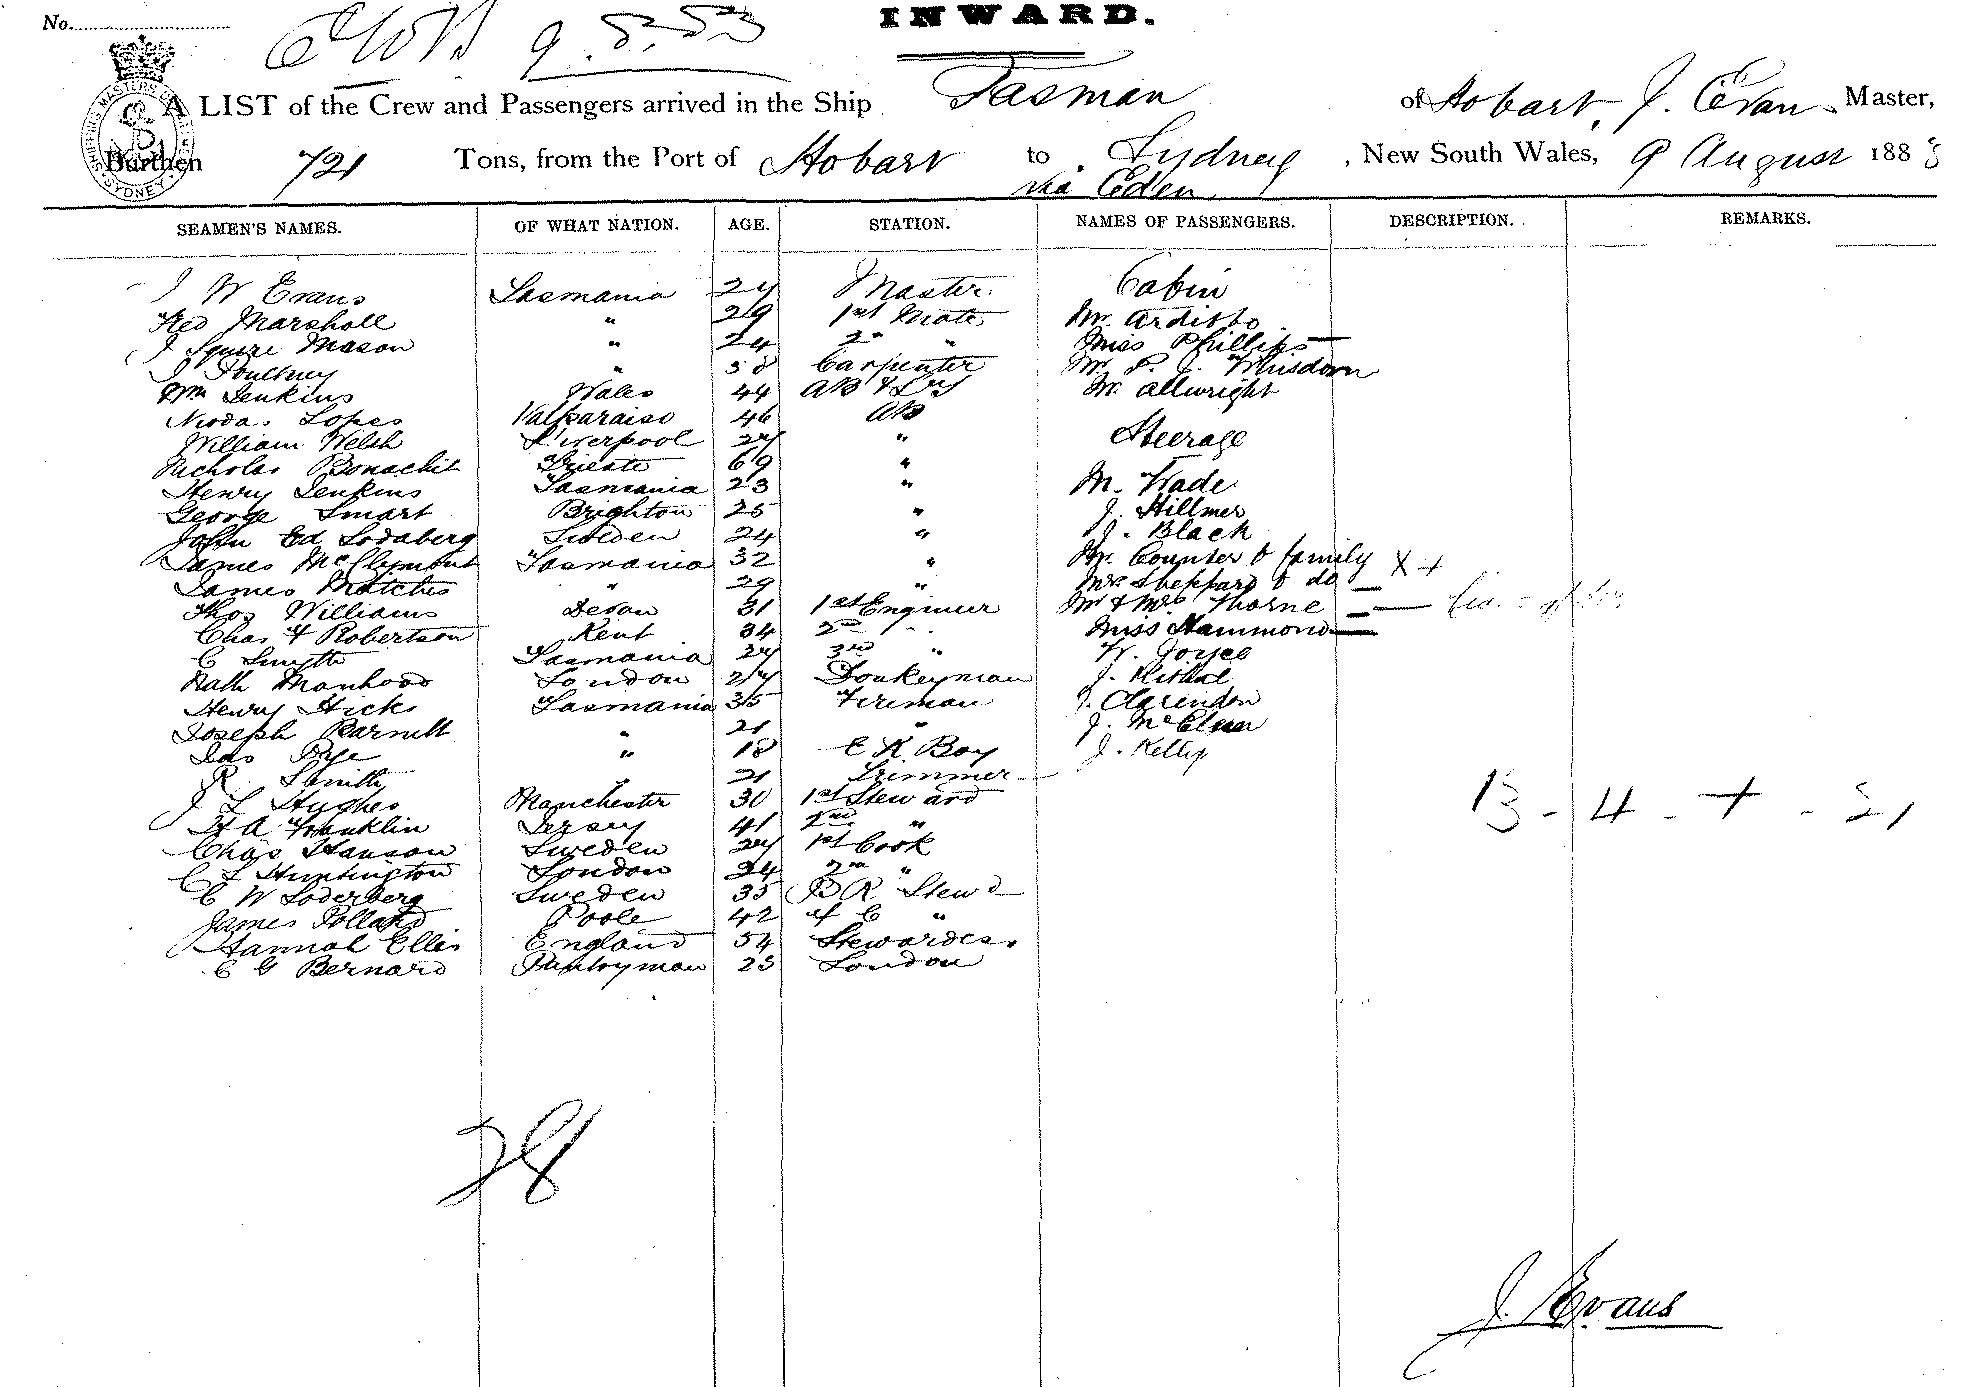 No.
INWARD.
A LIST of the Crew and Passengers arrived in the Ship Tasman of Hobart, J. Evan Master,
Burthen 721 Tons, from the Port of Hobart to Sydney, New South Wales, 9 August 1883
via Eden
SEAMEN'S NAMES. OF WHAT NATION. AGE. STATION. NAMES OF PASSENGERS. DESCRIPTION. REMARKS.
J W Evans Tasmania 27 Master Cabin
Fred Marshall " 29 1st Mate Mr. Ardisto
J Squire Mason " 24 2nd " Miss Phillips
J Poultney " 38 Carpenter Mr. P. J. Whisdown
Wm Jenkins Wales 44 AB & Lds Mr. Allwright
Lopes Valparaiso 46 AB
William Welsh Liverpool 27 " Steerage
Nicholas Bonachit Trieste 69 "
Henry Jenkins Tasmania 23 " M. Wade
George Smart Brighton 25 " J. Hillmer
John Ed Sodaberg Sweden 24 " J. Black
James McClymont Tasmania 32 " Mr. Counter & family X +
James Matches " 29 " Mrs Sheppard & do
Thos Williams Devon 31 1st Engineer Mr & Mrs Thorne
Chas F Robertson Kent 34 2nd " Miss Hammond
C Smyth Tasmania 27 3rd " W. Joyce
Nath Manhood London 27 Donkeyman J.
Henry Hicks Tasmania 35 Fireman J. Clarendon
Joseph Barnett " 21 " J.
Jas Pye " 18 E R Boy J. Kelly
R. Smith " 21 Trimmer
J L Hughes Manchester 30 1st Steward 13 - 4 - + - 21
H A Franklin Jersey 41 2nd "
Chas Hanson Sweden 27 1st Cook
C L Huntington London 24 2nd "
C W Soderberg Sweden 35 B R Stewd
James Pollard Poole 42 F C "
Hannah Ellis England 54 Stewardess
C G Bernard Pantryman 23 London
28
J. Evans